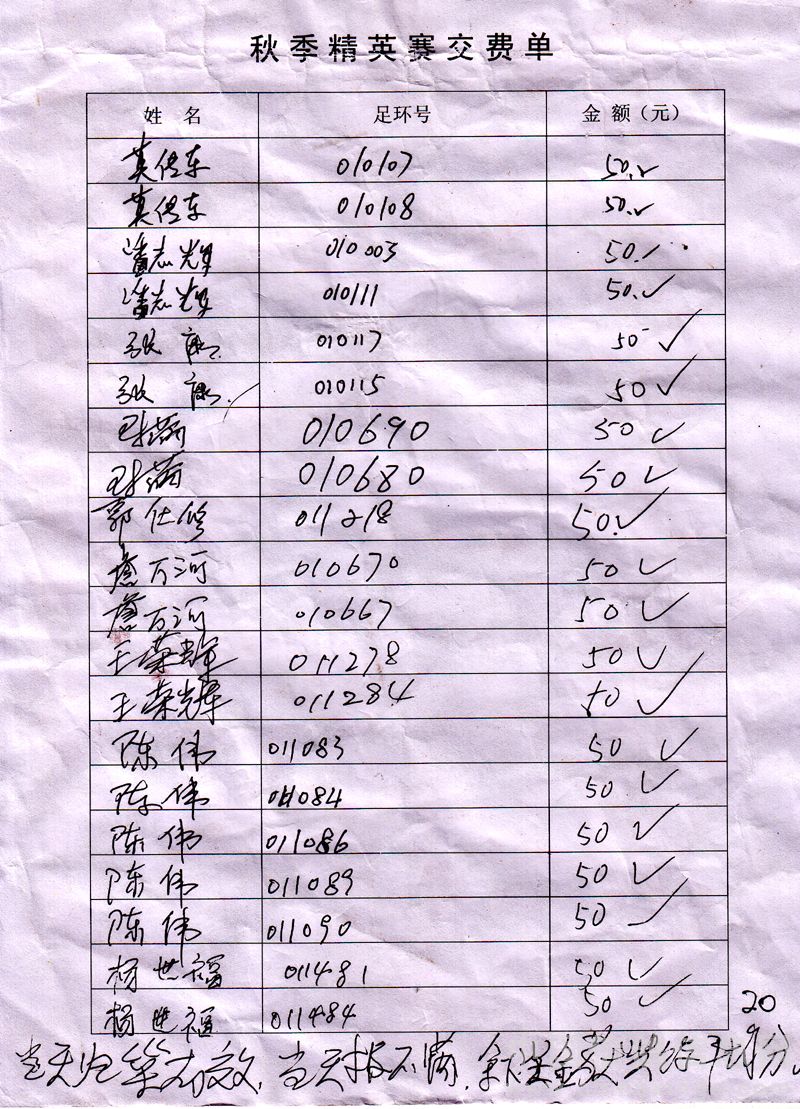 秋季精英赛交费单
姓 名 足环号 金 额（元）
莫传车 010107 50.✓
莫传车 010108 50.✓
潘志辉 010003 50.✓
潘志辉 010111 50.✓
张 010117 50 ✓
张 010115 50 ✓
010690 50 ✓
010680 50 ✓
郭仕修 011218 50.✓
詹万河 010670 50 ✓
詹万河 010667 50 ✓
王荣辉 011278 50 ✓
王荣辉 011284 50 ✓
陈伟 011083 50 ✓
陈伟 011084 50 ✓
陈伟 011086 50 ✓
陈伟 011089 50 ✓
陈伟 011090 50 ✓
杨世福 011481 50 ✓
杨世福 011484 50 ✓
20
当天归巢有效，当天报不满，奖金 平均分。